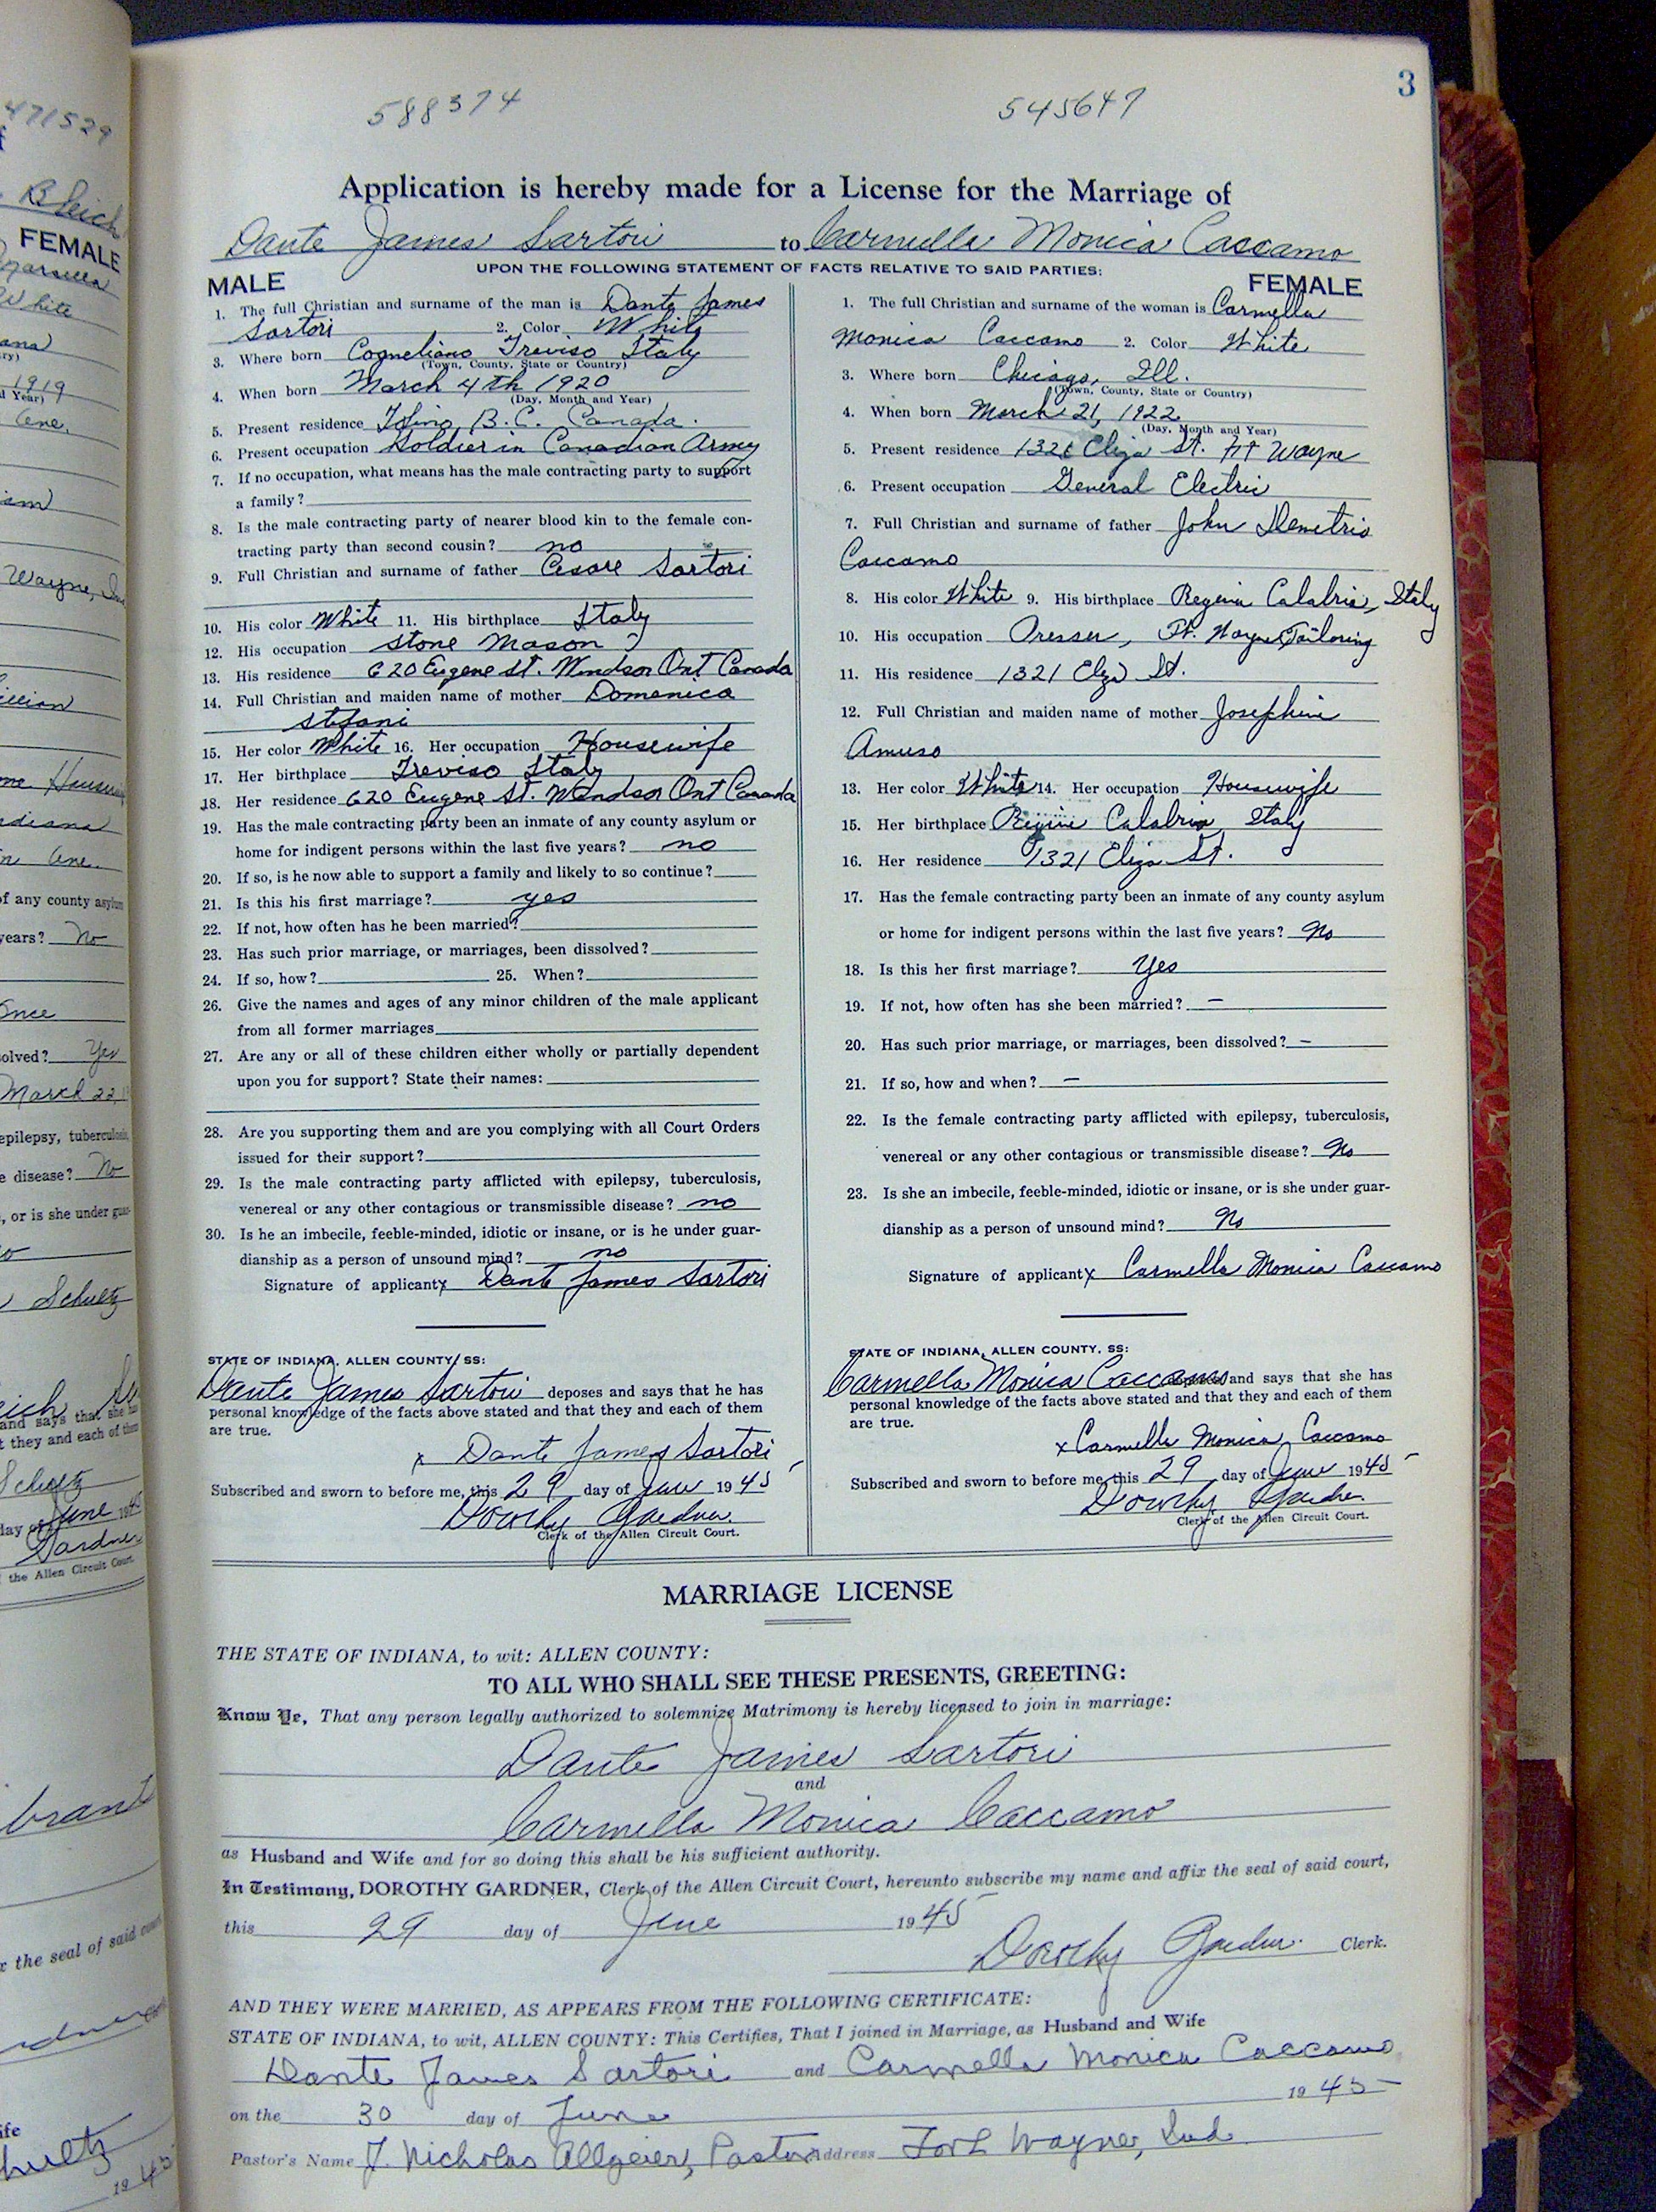 471529
Bleich
FEMALE
White
1919
Wayne,
years? No
Once
solved? Yes
March 22,
epilepsy, tuberculosis,
e disease? No
, or is she under guar-
Schultz
and says that she has
t they and each of them
Schultz
June 1945
Gardner
the Allen Circuit Court.
3
588374 545647
Application is hereby made for a License for the Marriage of
Dante James Sartori to Carmella Monica Caccamo
UPON THE FOLLOWING STATEMENT OF FACTS RELATIVE TO SAID PARTIES:
MALE
1. The full Christian and surname of the man is Dante James
Sartori 2. Color White
3. Where born Cogneliano Treviso Italy
(Town, County, State or Country)
4. When born March 4th 1920
(Day, Month and Year)
5. Present residence Tofino B.C. Canada.
6. Present occupation Soldier in Canadian Army
7. If no occupation, what means has the male contracting party to support
a family?
8. Is the male contracting party of nearer blood kin to the female con-
tracting party than second cousin? no
9. Full Christian and surname of father Cesare Sartori
10. His color White 11. His birthplace Italy
12. His occupation Stone Mason
13. His residence 620 Eugene St. Windsor Ont Canada
14. Full Christian and maiden name of mother Domenica
Stefani
15. Her color White 16. Her occupation Housewife
17. Her birthplace Treviso Italy
18. Her residence 620 Eugene St. Windsor Ont Canada
19. Has the male contracting party been an inmate of any county asylum or
home for indigent persons within the last five years? no
20. If so, is he now able to support a family and likely to so continue?
21. Is this his first marriage? yes
22. If not, how often has he been married?
23. Has such prior marriage, or marriages, been dissolved?
24. If so, how? 25. When?
26. Give the names and ages of any minor children of the male applicant
from all former marriages
27. Are any or all of these children either wholly or partially dependent
upon you for support? State their names:
28. Are you supporting them and are you complying with all Court Orders
issued for their support?
29. Is the male contracting party afflicted with epilepsy, tuberculosis,
venereal or any other contagious or transmissible disease? no
30. Is he an imbecile, feeble-minded, idiotic or insane, or is he under guar-
dianship as a person of unsound mind? no
Signature of applicant x Dante James Sartori
STATE OF INDIANA, ALLEN COUNTY, SS:
Dante James Sartori deposes and says that he has
personal knowledge of the facts above stated and that they and each of them
are true.
x Dante James Sartori
Subscribed and sworn to before me, this 29 day of June 1945
Dorothy Gardner
Clerk of the Allen Circuit Court.
FEMALE
1. The full Christian and surname of the woman is Carmella
Monica Caccamo 2. Color White
3. Where born Chicago, Ill.
(Town, County, State or Country)
4. When born March 21, 1922
(Day, Month and Year)
5. Present residence 1321 Eliza St. Ft Wayne
6. Present occupation General Electric
7. Full Christian and surname of father John Demetrio
Caccamo
8. His color White 9. His birthplace Calabria, Italy
10. His occupation Presser, Ft. Wayne Tailoring
11. His residence 1321 Eliza St.
12. Full Christian and maiden name of mother Josephine
Amuso
13. Her color White 14. Her occupation Housewife
15. Her birthplace Calabria Italy
16. Her residence 1321 Eliza St.
17. Has the female contracting party been an inmate of any county asylum
or home for indigent persons within the last five years? No
18. Is this her first marriage? Yes
19. If not, how often has she been married? —
20. Has such prior marriage, or marriages, been dissolved? —
21. If so, how and when? —
22. Is the female contracting party afflicted with epilepsy, tuberculosis,
venereal or any other contagious or transmissible disease? No
23. Is she an imbecile, feeble-minded, idiotic or insane, or is she under guar-
dianship as a person of unsound mind? No
Signature of applicant x Carmella Monica Caccamo
STATE OF INDIANA, ALLEN COUNTY, SS:
Carmella Monica Caccamo and says that she has
personal knowledge of the facts above stated and that they and each of them
are true.
x Carmella Monica Caccamo
Subscribed and sworn to before me, this 29 day of June 1945
Dorothy Gardner
Clerk of the Allen Circuit Court.
MARRIAGE LICENSE
THE STATE OF INDIANA, to wit: ALLEN COUNTY:
TO ALL WHO SHALL SEE THESE PRESENTS, GREETING:
Know Ye, That any person legally authorized to solemnize Matrimony is hereby licensed to join in marriage:
Dante James Sartori
and
Carmella Monica Caccamo
as Husband and Wife and for so doing this shall be his sufficient authority.
In Testimony, DOROTHY GARDNER, Clerk of the Allen Circuit Court, hereunto subscribe my name and affix the seal of said court,
this 29 day of June 1945
Dorothy Gardner Clerk.
AND THEY WERE MARRIED, AS APPEARS FROM THE FOLLOWING CERTIFICATE:
STATE OF INDIANA, to wit, ALLEN COUNTY: This Certifies, That I joined in Marriage, as Husband and Wife
Dante James Sartori and Carmella Monica Caccamo
on the 30 day of June 1945
Pastor's Name J. Nicholas Allgeier, Pastor Address Fort Wayne, Ind.